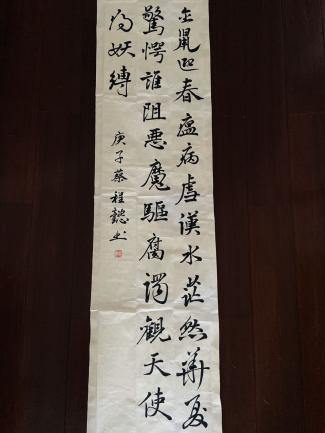 金鼠迎春瘟病虐漢水茫然華夏
驚愕誰阻惡魔驅腐濁觀天使
為妖縛
庚子蔡程懿书